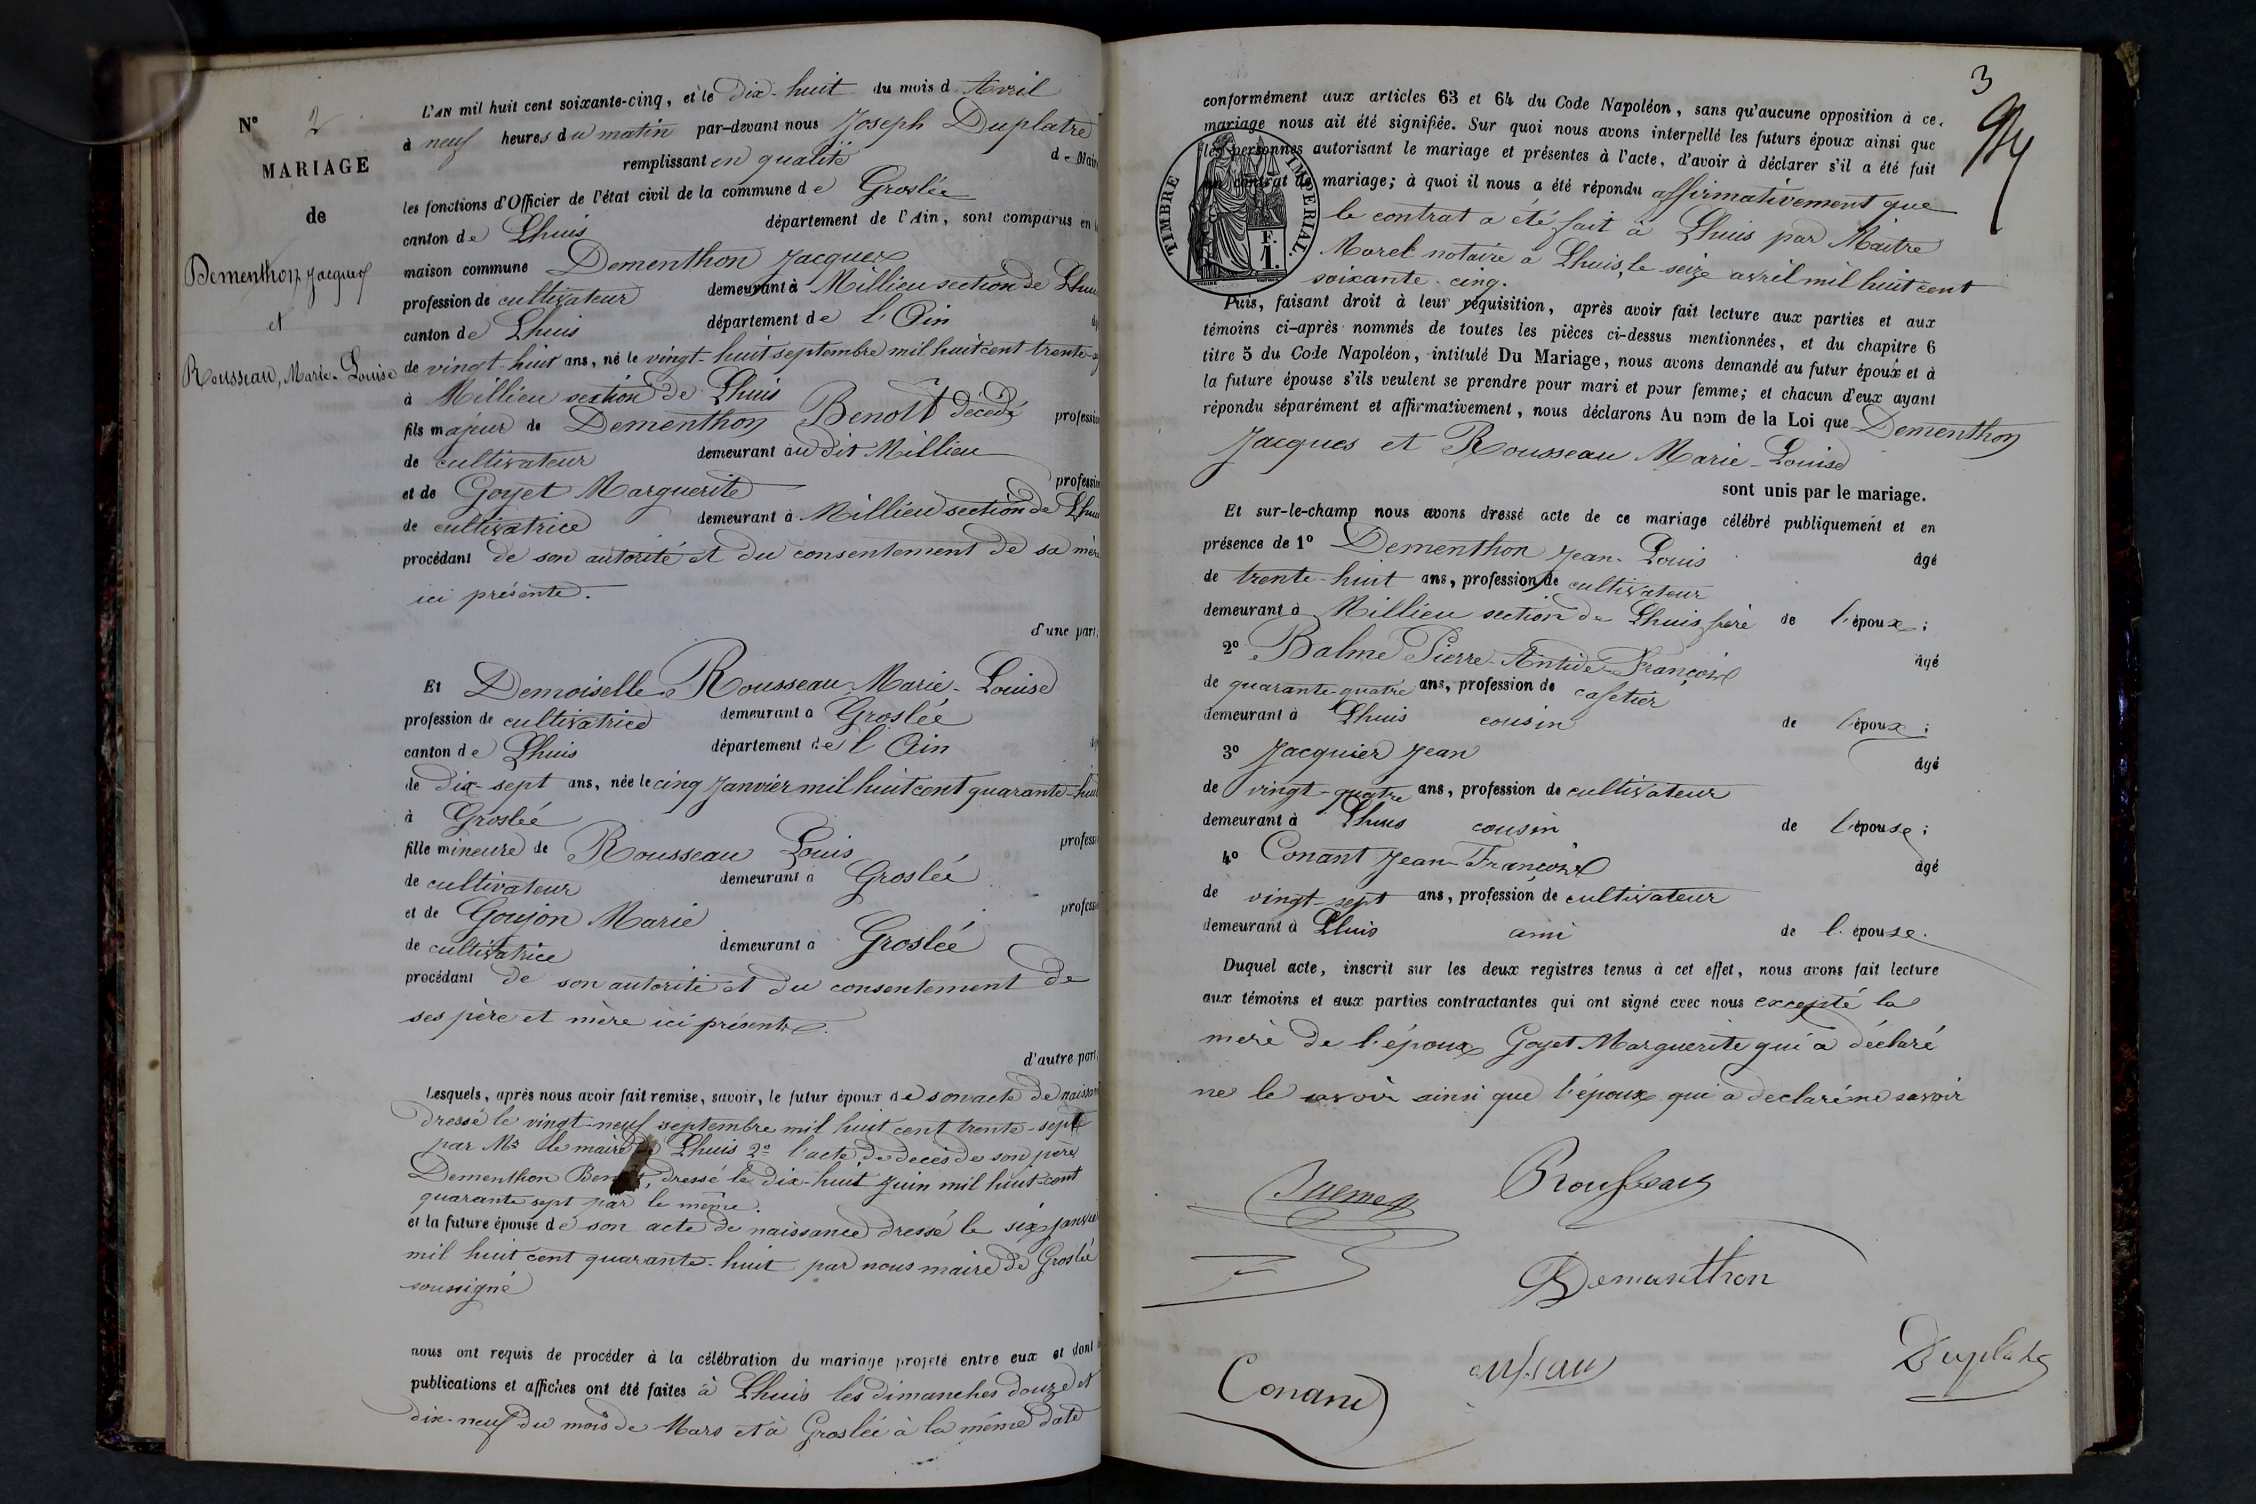 N° 2
MARIAGE
de
Dementhon Jacques
et
Rousseau, Marie-Louise
L'AN mil huit cent soixante-cinq, et le dix-huit du mois d Avril
à neuf heures du matin par-devant nous Joseph Duplatre
remplissant en qualité de Maire
les fonctions d'Officier de l'état civil de la commune de Groslée
canton de Lhuis département de l'Ain, sont comparus en
maison commune Dementhon Jacques
profession de cultivateur demeurant à Millieu section de Lhuis
canton de Lhuis département de l'Ain
de vingt-huit ans, né le vingt-huit septembre mil huit cent trente-
à Millieu section de Lhuis
fils majeur de Dementhon Benoît décédé profession
de cultivateur demeurant au dit Millieu
et de Goyet Marguerite profession
de cultivatrice demeurant à Millieu section de Lhuis
procédant de son autorité et du consentement de sa mère
ici présente.
d'une part,
Et Demoiselle Rousseau Marie-Louise
profession de cultivatrice demeurant à Groslée
canton de Lhuis département de l'Ain
de dix-sept ans, née le cinq Janvier mil huit cent quarante-huit
à Groslée
fille mineure de Rousseau Louis profession
de cultivateur demeurant à Groslée
et de Goujon Marie profession
de cultivatrice demeurant à Groslée
procédant de son autorité et du consentement de
ses père et mère ici présents.
d'autre part,
Lesquels, après nous avoir fait remise, savoir, le futur époux de son acte de naissance
dressé le vingt-neuf septembre mil huit cent trente-sept
par Mr le maire de Lhuis 2° l'acte de décès de son père
Dementhon Benoit, dressé le dix-huit Juin mil huit cent
quarante sept par le même.
et la future épouse de son acte de naissance dressé le six janvier
mil huit cent quarante-huit par nous maire de Groslée
soussigné
nous ont requis de procéder à la célébration du mariage projeté entre eux et dont
publications et affiches ont été faites à Lhuis les dimanches douze et
dix-neuf du mois de Mars et à Groslée à la même date
3
conformément aux articles 63 et 64 du Code Napoléon, sans qu'aucune opposition à ce
mariage nous ait été signifiée. Sur quoi nous avons interpellé les futurs époux ainsi que
les personnes autorisant le mariage et présentes à l'acte, d'avoir à déclarer s'il a été fait
un contrat de mariage; à quoi il nous a été répondu affirmativement que
le contrat a été fait à Lhuis par Maitre
Morel notaire à Lhuis, le seize avril mil huit cent
soixante-cinq.
TIMBRE IMPÉRIAL.
F.
1.
Puis, faisant droit à leur réquisition, après avoir fait lecture aux parties et aux
témoins ci-après nommés de toutes les pièces ci-dessus mentionnées, et du chapitre 6
titre 5 du Code Napoléon, intitulé Du Mariage, nous avons demandé au futur époux et à
la future épouse s'ils veulent se prendre pour mari et pour femme; et chacun d'eux ayant
répondu séparément et affirmativement, nous déclarons Au nom de la Loi que Dementhon
Jacques et Rousseau Marie-Louise
sont unis par le mariage.
Et sur-le-champ nous avons dressé acte de ce mariage célébré publiquement et en
présence de 1° Dementhon Jean-Louis âgé
de trente-huit ans, profession de cultivateur
demeurant à Millieu section de Lhuis frère de l'époux;
2° Balme Pierre-Antide-François âgé
de quarante-quatre ans, profession de cafetier
demeurant à Lhuis cousin de l'époux;
3° Jacquier Jean âgé
de vingt-quatre ans, profession de cultivateur
demeurant à Lhuis cousin de l'épouse;
4° Conant Jean-François âgé
de vingt-sept ans, profession de cultivateur
demeurant à Lhuis ami de l'épouse.
Duquel acte, inscrit sur les deux registres tenus à cet effet, nous avons fait lecture
aux témoins et aux parties contractantes qui ont signé avec nous excepté la
mère de l'époux Goyet Marguerite qui a déclaré
ne le savoir ainsi que l'époux qui a declaré ne savoir
Rousseau
Demanthon
Conand
Duplatre